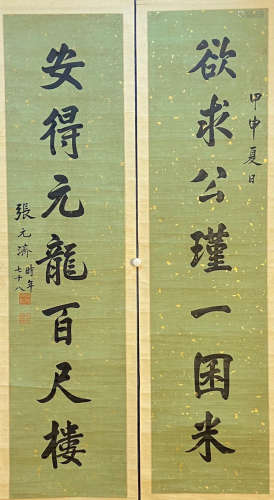 甲申夏日
欲求公瑾一囷米
安得元龍百尺樓
張元濟時年七十八